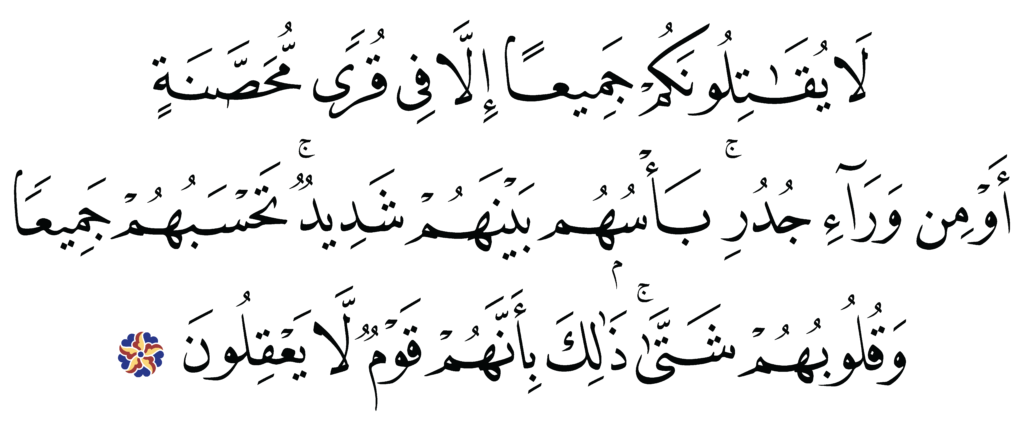 لَا يُقَـٰتِلُونَكُمْ جَمِيعًا إِلَّا فِى قُرًى مُّحَصَّنَةٍ
أَوْ مِن وَرَآءِ جُدُرٍۭ ۚ بَأْسُهُم بَيْنَهُمْ شَدِيدٌ ۚ تَحْسَبُهُمْ جَمِيعًا
وَقُلُوبُهُمْ شَتَّىٰ ۚ ذَٰلِكَ بِأَنَّهُمْ قَوْمٌ لَّا يَعْقِلُونَ